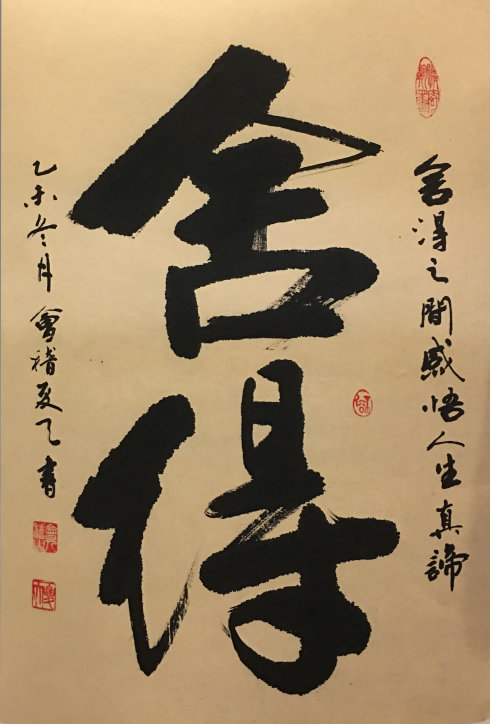 舍得
舍得之間感悟人生真諦
乙未冬月 會稽夏天書